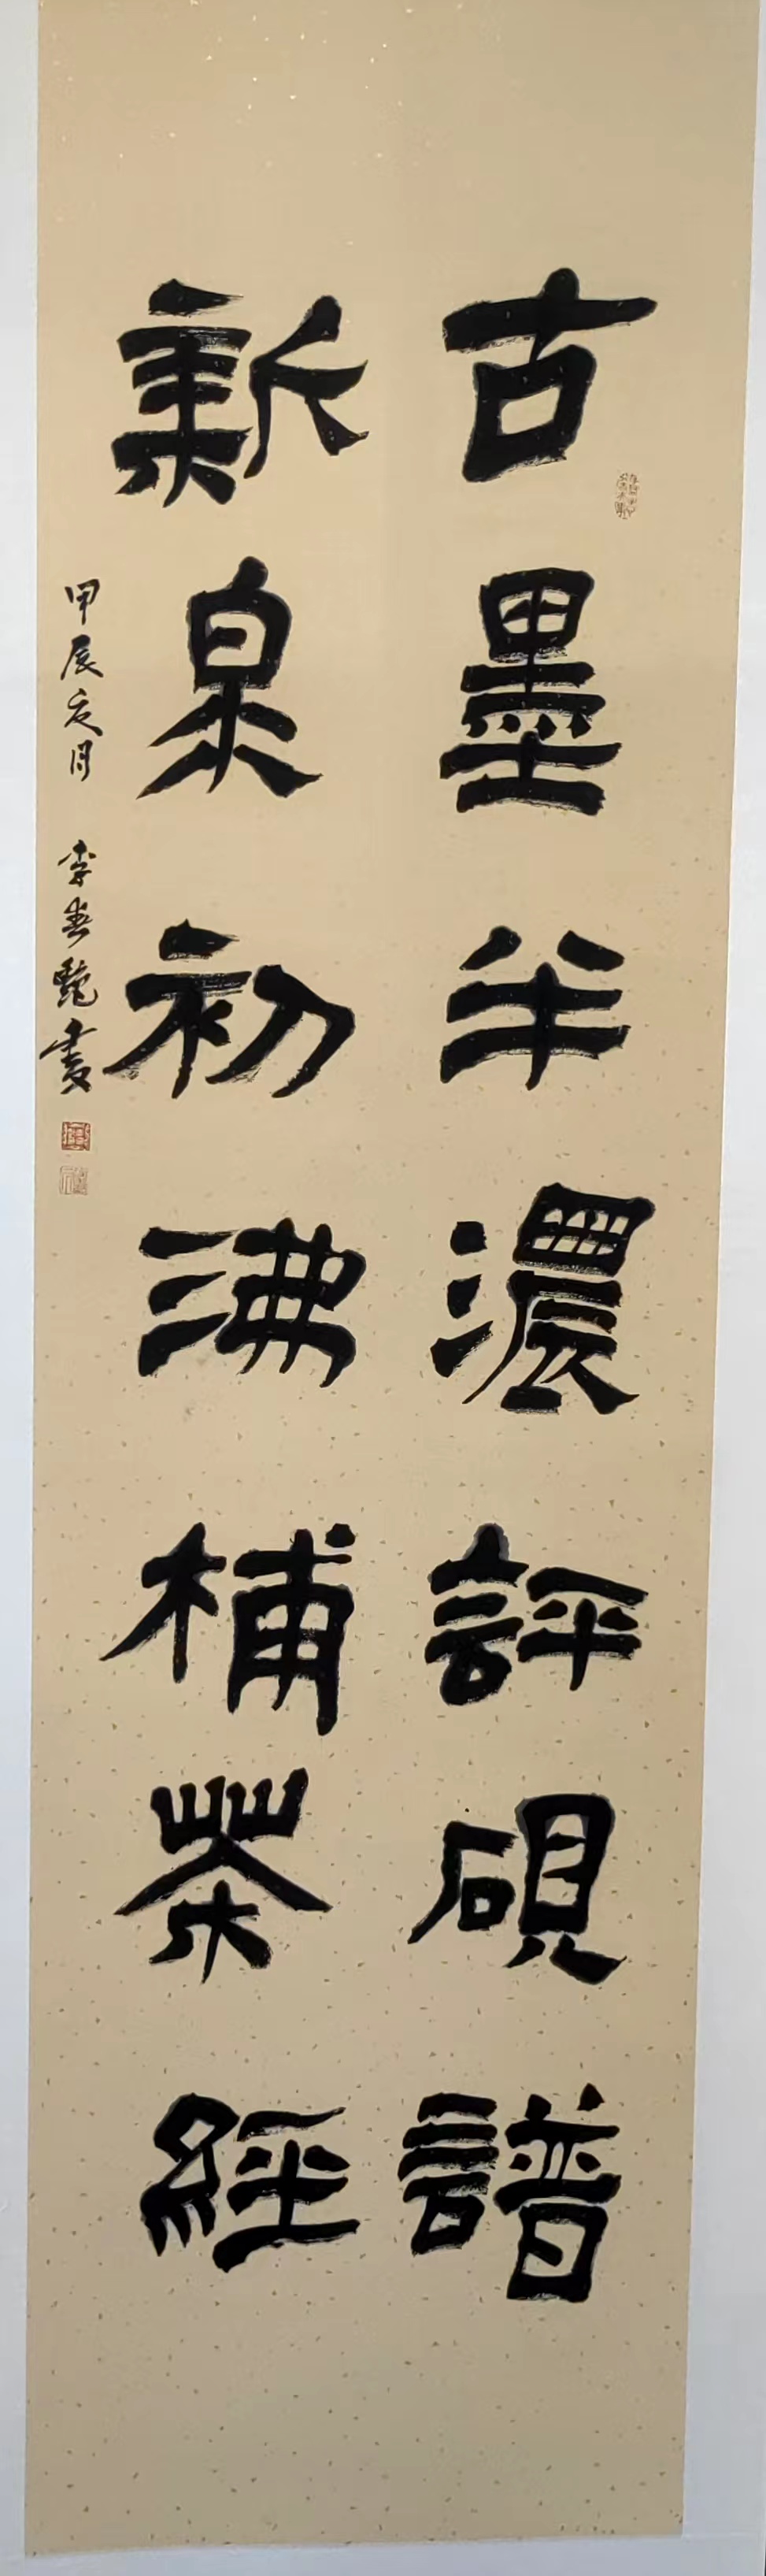 古墨半濃評硯譜
新泉初沸補茶經
甲辰夏月 李春艷書